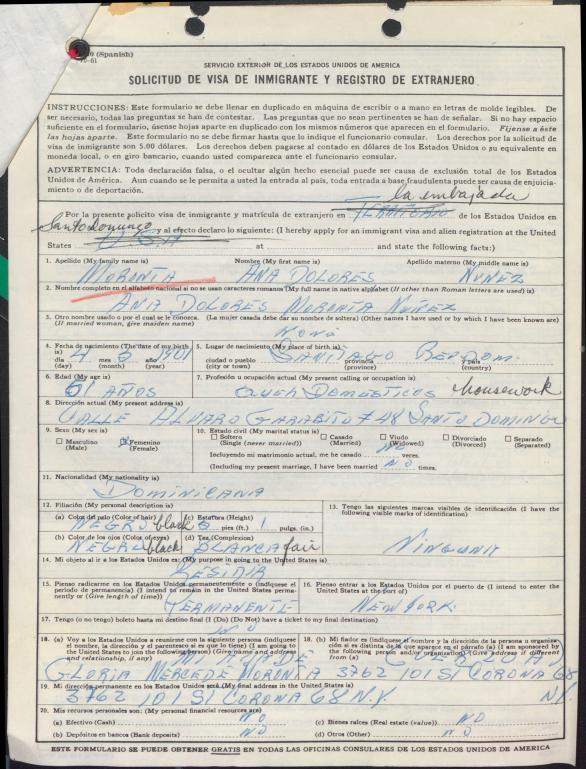 (Spanish)
SERVICIO EXTERIOR DE LOS ESTADOS UNIDOS DE AMERICA
SOLICITUD DE VISA DE INMIGRANTE Y REGISTRO DE EXTRANJERO
INSTRUCCIONES: Este formulario se debe llenar en duplicado en máquina de escribir o a mano en letras de molde legibles. De
ser necesario, todas las preguntas se han de contestar. Las preguntas que no sean pertinentes se han de señalar. Si no hay espacio
suficiente en el formulario, úsense hojas aparte en duplicado con los mismos números que aparecen en el formulario. Fíjense a éste
las hojas aparte. Este formulario no se debe firmar hasta que lo indique el funcionario consular. Los derechos por la solicitud
de visa de inmigrante son 5.00 dólares. Los derechos deben pagarse al contado en dólares de los Estados Unidos o su equivalente en
moneda local, o en giro bancario, cuando usted comparezca ante el funcionario consular.
ADVERTENCIA: Toda declaración falsa, o el ocultar algún hecho esencial puede ser causa de exclusión total de los Estados
Unidos de América. Aun cuando se le permita a usted la entrada al país, toda entrada a base fraudulenta puede ser causa de enjuicia-
miento o de deportación.
la embajada
Por la presente solicito visa de inmigrante y matrícula de extranjero en de los Estados Unidos en
Santo Domingo y al efecto declaro lo siguiente: (I hereby apply for an immigrant visa and alien registration at the United
States at and state the following facts:)
1. Apellido (My family name is) Nombre (My first name is) Apellido materno (My middle name is)
MORONTA ANA DOLORES NUNEZ
2. Nombre completo en el alfabeto nacional si no se usan caracteres romanos (My full name in native alphabet (If other than Roman letters are used) is)
ANA DOLORES MORONTA NUÑEZ
3. Otro nombre usado o por el cual se le conozca. (La mujer casada debe dar su nombre de soltera) (Other names I have used or by which I have been known are)
(If married woman, give maiden name)
4. Fecha de nacimiento (The date of my birth is) 5. Lugar de nacimiento (My place of birth is)
día 4 mes año 1901 ciudad o pueblo SANTIAGO provincia REP. DOM. y país
(day) (month) (year) (city or town) (province) (country)
6. Edad (My age is) 7. Profesión u ocupación actual (My present calling or occupation is)
61 AÑOS DOMESTICOS housework
8. Dirección actual (My present address is)
CALLE ALVARO GARABITO # 48 SANTO DOMINGO
9. Sexo (My sex is) 10. Estado civil (My marital status is)
Masculino Femenino Soltero Casado Viudo Divorciado Separado
(Male) (Female) (Single (never married)) (Married) (Widowed) (Divorced) (Separated)
Incluyendo mi matrimonio actual, me he casado NO veces.
(Including my present marriage, I have been married NO times.
11. Nacionalidad (My nationality is)
DOMINICANA
12. Filiación (My personal description is) 13. Tengo las siguientes marcas visibles de identificación (I have the
following visible marks of identification)
(a) Color del pelo (Color of hair) (c) Estatura (Height)
NEGRO black 5 pies (ft.) 1 pulgs. (in.)
(b) Color de los ojos (Color of eyes) (d) Tez (Complexion)
NEGRO black BLANCA fair NINGUNA
14. Mi objeto al ir a los Estados Unidos es: (My purpose in going to the United States is)
RESIDIR
15. Pienso radicarme en los Estados Unidos permanentemente o (indíquese el período de permanencia) (I intend to remain in the United States permanently or (Give length of time))
PERMANENTE
16. Pienso entrar a los Estados Unidos por el puerto de (I intend to enter the United States at the port of)
NEW YORK
17. Tengo (o no tengo) boleto hasta mi destino final (I (Do) (Do not) have a ticket to my final destination)
NO
18. (a) Voy a los Estados Unidos a reunirme con la siguiente persona (indíquese el nombre, la dirección y el parentesco si es que lo tiene) (I am going to the United States to join the following person) (Give name and address and relationship, if any)
18. (b) Mi fiador es (indíquese el nombre y la dirección de la persona u organización si es distinta de la que aparece en el párrafo (a) (I am sponsored by the following person and/or organization) (Give address if different from (a)
GLORIA MERCEDE MORONTA 3762 101 ST CORONA 68 N.Y.
19. Mi dirección permanente en los Estados Unidos será (My final address in the United States is)
3762 101 ST CORONA 68 N.Y.
20. Mis recursos personales son: (My personal financial resources are)
(a) Efectivo (Cash) NO (c) Bienes raíces (Real estate (value)) NO
(b) Depósitos en bancos (Bank deposits) NO (d) Otros (Other) NO
ESTE FORMULARIO SE PUEDE OBTENER GRATIS EN TODAS LAS OFICINAS CONSULARES DE LOS ESTADOS UNIDOS DE AMERICA